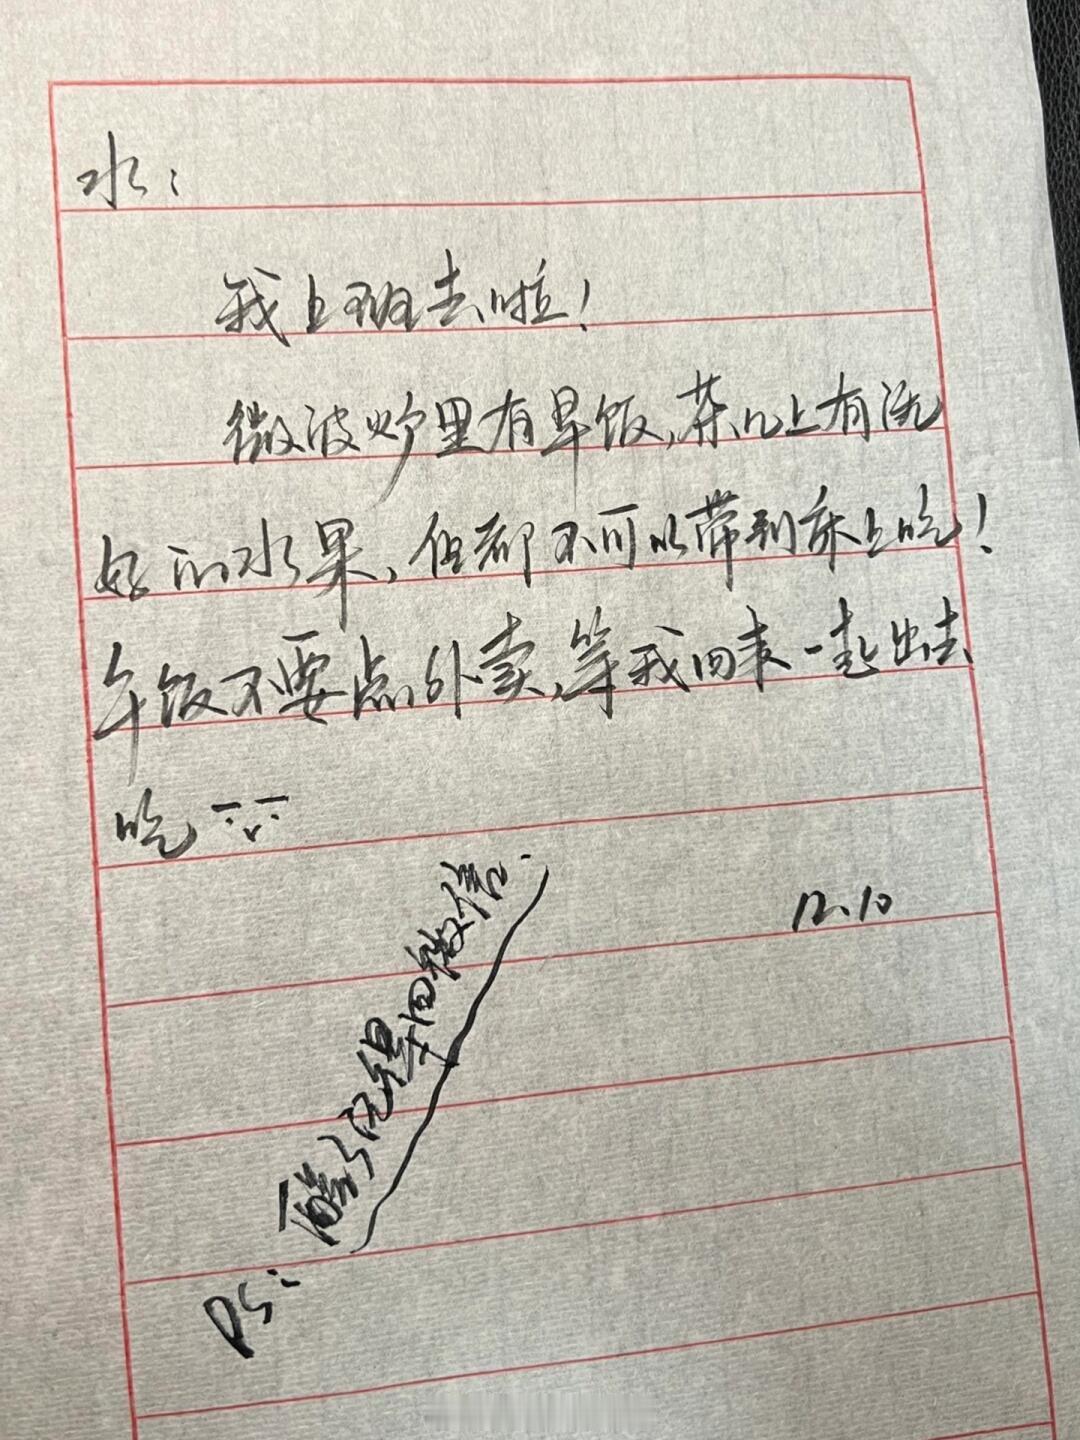 水：
我上班去啦！
微波炉里有早饭，茶几上有洗
好的水果，但都不可以带到床上吃！
午饭不要点外卖，等我回来一起出去
吃
12.10
PS：醒了记得回微信.